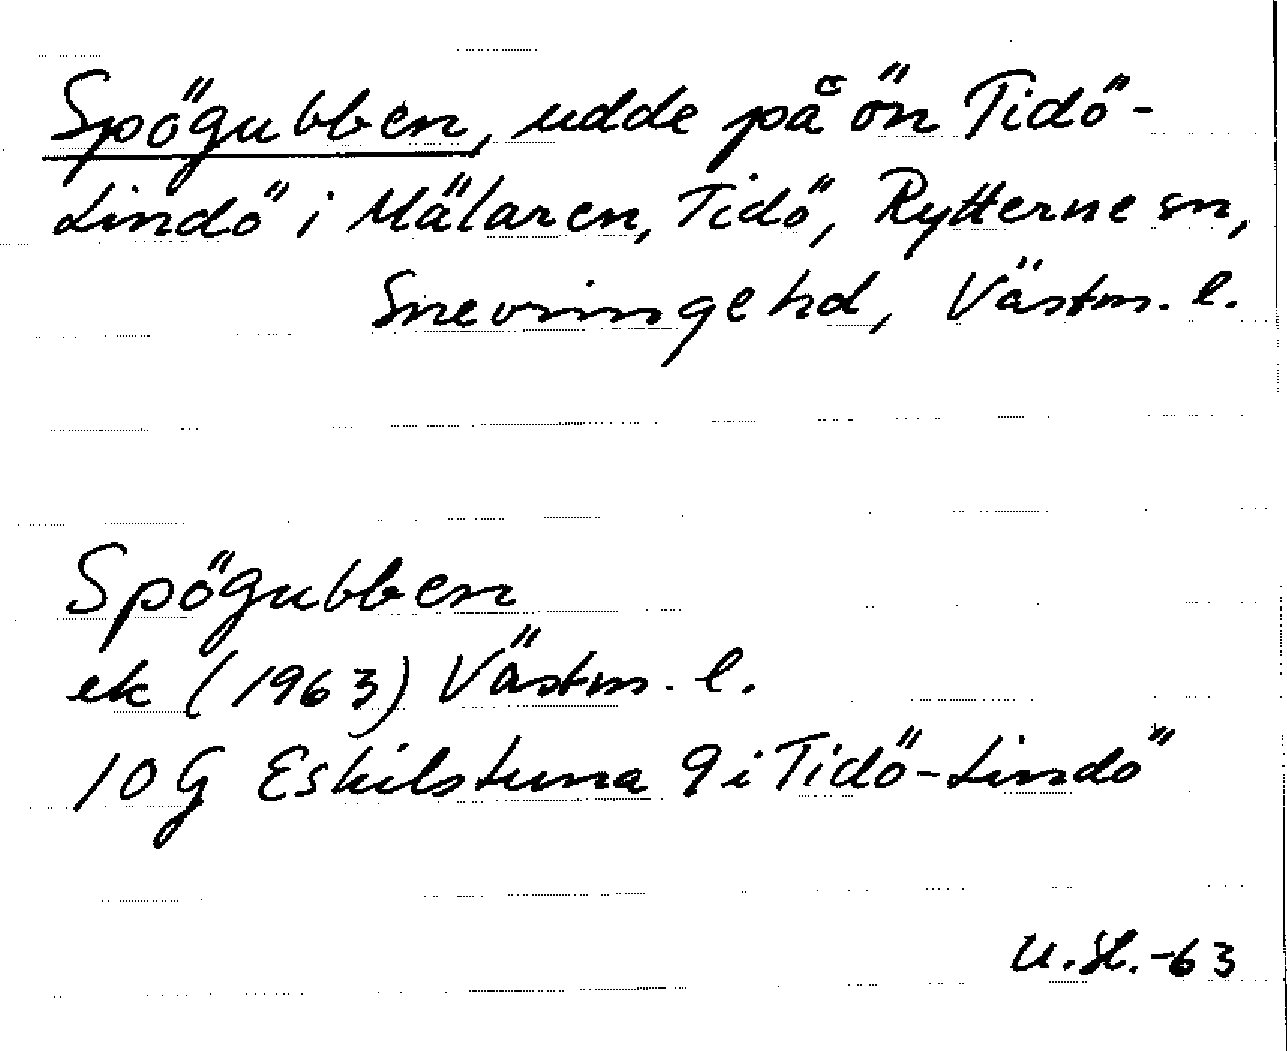 Spögubben, udde på ön Tidö-
Lindö i Mälaren, Tidö, Rytterne sn,
Snevringe hd, Västm. l.
Spögubben
ek (1963) Västm. l.
10G Eskilstuna 9i Tidö-Lindö
U.St.-63